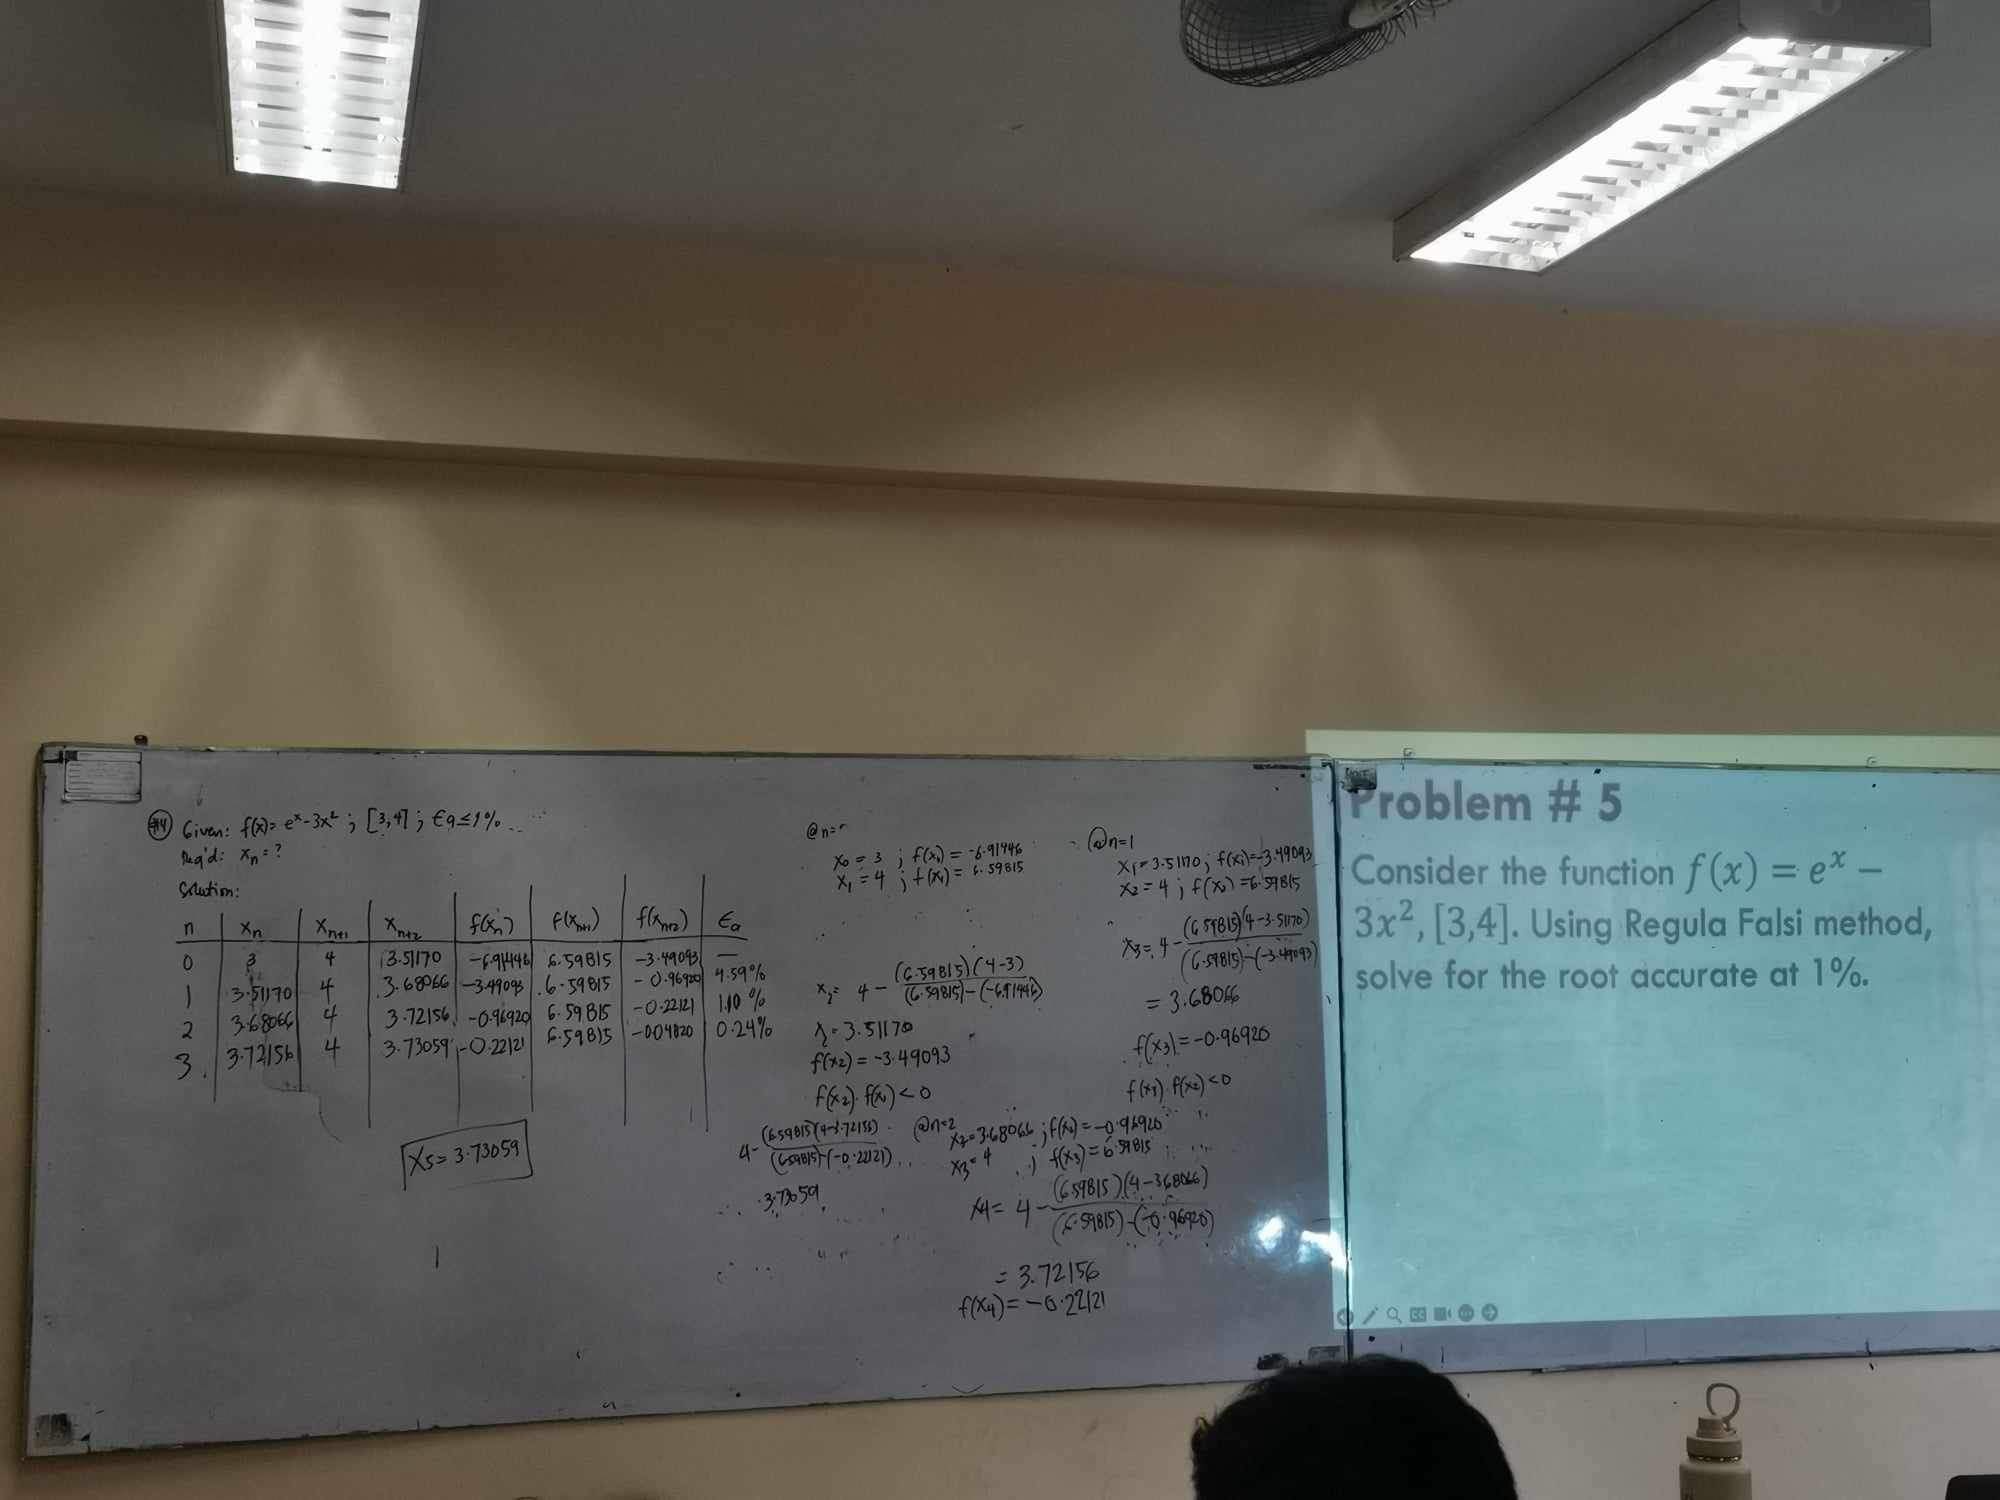 #4 Given: f(x) = eˣ - 3x² ; [3,4] ; Ea ≤ 1%
Req'd: xₙ = ?
Solution:
n | xₙ | xₙ₊₁ | xₙ₊₂ | f(xₙ) | f(xₙ₊₁) | f(xₙ₊₂) | Ea
0 | 3 | 4 | 3.51170 | -6.91446 | 6.59815 | -3.49093 | —
1 | 3.51170 | 4 | 3.68066 | -3.49093 | 6.59815 | -0.96920 | 4.59%
2 | 3.68066 | 4 | 3.72156 | -0.96920 | 6.59815 | -0.22121 | 1.10%
3. | 3.72156 | 4 | 3.73059 | -0.22121 | 6.59815 | -0.04820 | 0.24%
x₅ = 3.73059
@n=
x₀ = 3 ; f(x₀) = -6.91446
x₁ = 4 ; f(x₁) = 6.59815
x₂ = 4 - (6.59815)(4-3) / (6.59815)-(-6.91446)
= 3.51170
f(x₂) = -3.49093
f(x₂)·f(x₁) < 0
@n=1
x₁ = 3.51170 ; f(x₁) = -3.49093
x₂ = 4 ; f(x₂) = 6.59815
x₃ = 4 - (6.59815)(4-3.51170) / (6.59815)-(-3.49093)
= 3.68066
f(x₃) = -0.96920
f(x₃)·f(x₂) < 0
4 - (6.59815)(4-3.72156) / (6.59815)-(-0.22121)
3.73059
@n=2
x₂ = 3.68066 ; f(x₂) = -0.96920
x₃ = 4 ; f(x₃) = 6.59815
x₄ = 4 - (6.59815)(4-3.68066) / (6.59815)-(-0.96920)
= 3.72156
f(x₄) = -0.22121
Problem # 5
Consider the function f(x) = eˣ −
3x², [3,4]. Using Regula Falsi method,
solve for the root accurate at 1%.